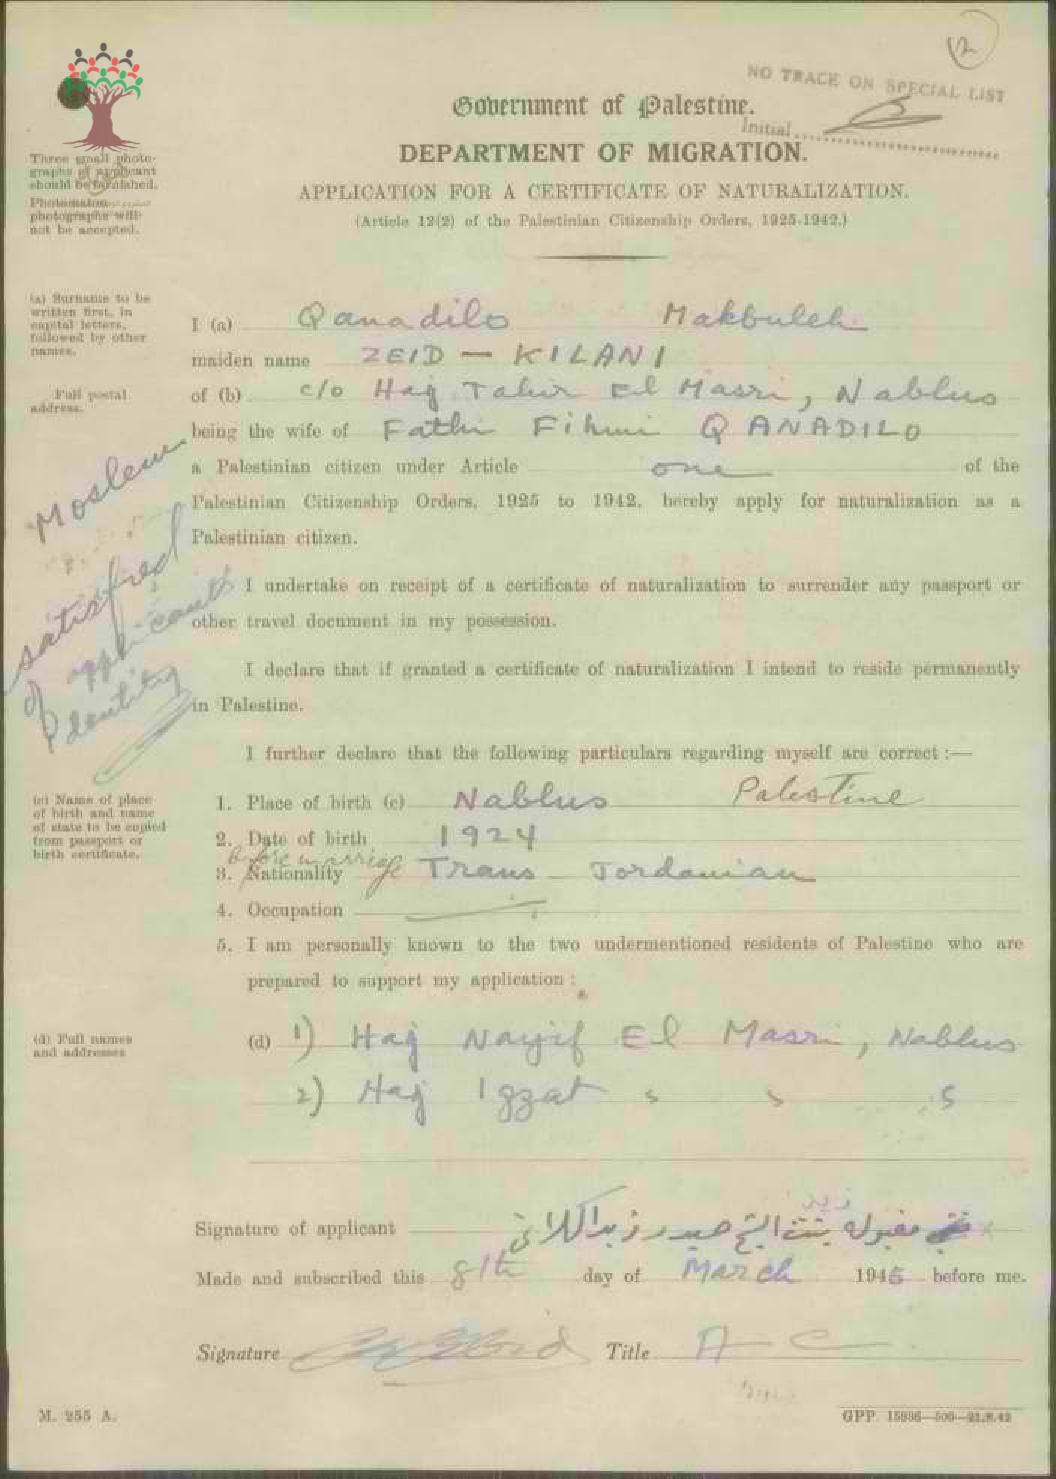 12
NO TRACE ON SPECIAL LIST
Initial
Government of Palestine.
DEPARTMENT OF MIGRATION.
APPLICATION FOR A CERTIFICATE OF NATURALIZATION.
(Article 12(2) of the Palestinian Citizenship Orders, 1925-1942.)
Three small photo-
graphs of applicant
should be furnished.
Photomaton
photographs will
not be accepted.
(a) Surname to be
written first, in
capital letters,
followed by other
names.
I (a) Qanadilo Makbuleh
maiden name ZEID — KILANI
Full postal
address.
of (b) c/o Haj Tahir El Masri, Nablus
being the wife of Fathi Fihmi QANADILO
a Palestinian citizen under Article one of the
Palestinian Citizenship Orders, 1925 to 1942, hereby apply for naturalization as a
Palestinian citizen.
Moslem
satisfied
of applicant's
Identity
I undertake on receipt of a certificate of naturalization to surrender any passport or
other travel document in my possession.
I declare that if granted a certificate of naturalization I intend to reside permanently
in Palestine.
I further declare that the following particulars regarding myself are correct :—
(c) Name of place
of birth and name
of state to be copied
from passport or
birth certificate.
1. Place of birth (c) Nablus Palestine
2. Date of birth 1924
before marriage
3. Nationality Trans-Jordanian
4. Occupation
5. I am personally known to the two undermentioned residents of Palestine who are
prepared to support my application :
(d) Full names
and addresses
(d) 1) Haj Nayif El Masri, Nablus
2) Haj Izzat " " "
زيد
Signature of applicant مقبوله بنت الشيخ حيدر زيد الكلاني
Made and subscribed this 8th day of March 1945 before me.
Signature Title A C
M. 255 A.
GPP. 15936—500—21.8.42